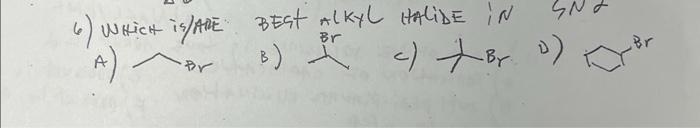 6) WHICH is/ARE BEST ALKYL HALIDE iN SN2
Br
A) Br B) C) Br D) Br